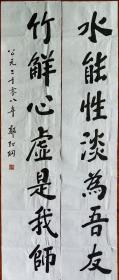 水能性淡為吾友
竹解心虛是我師
公元二千零八年